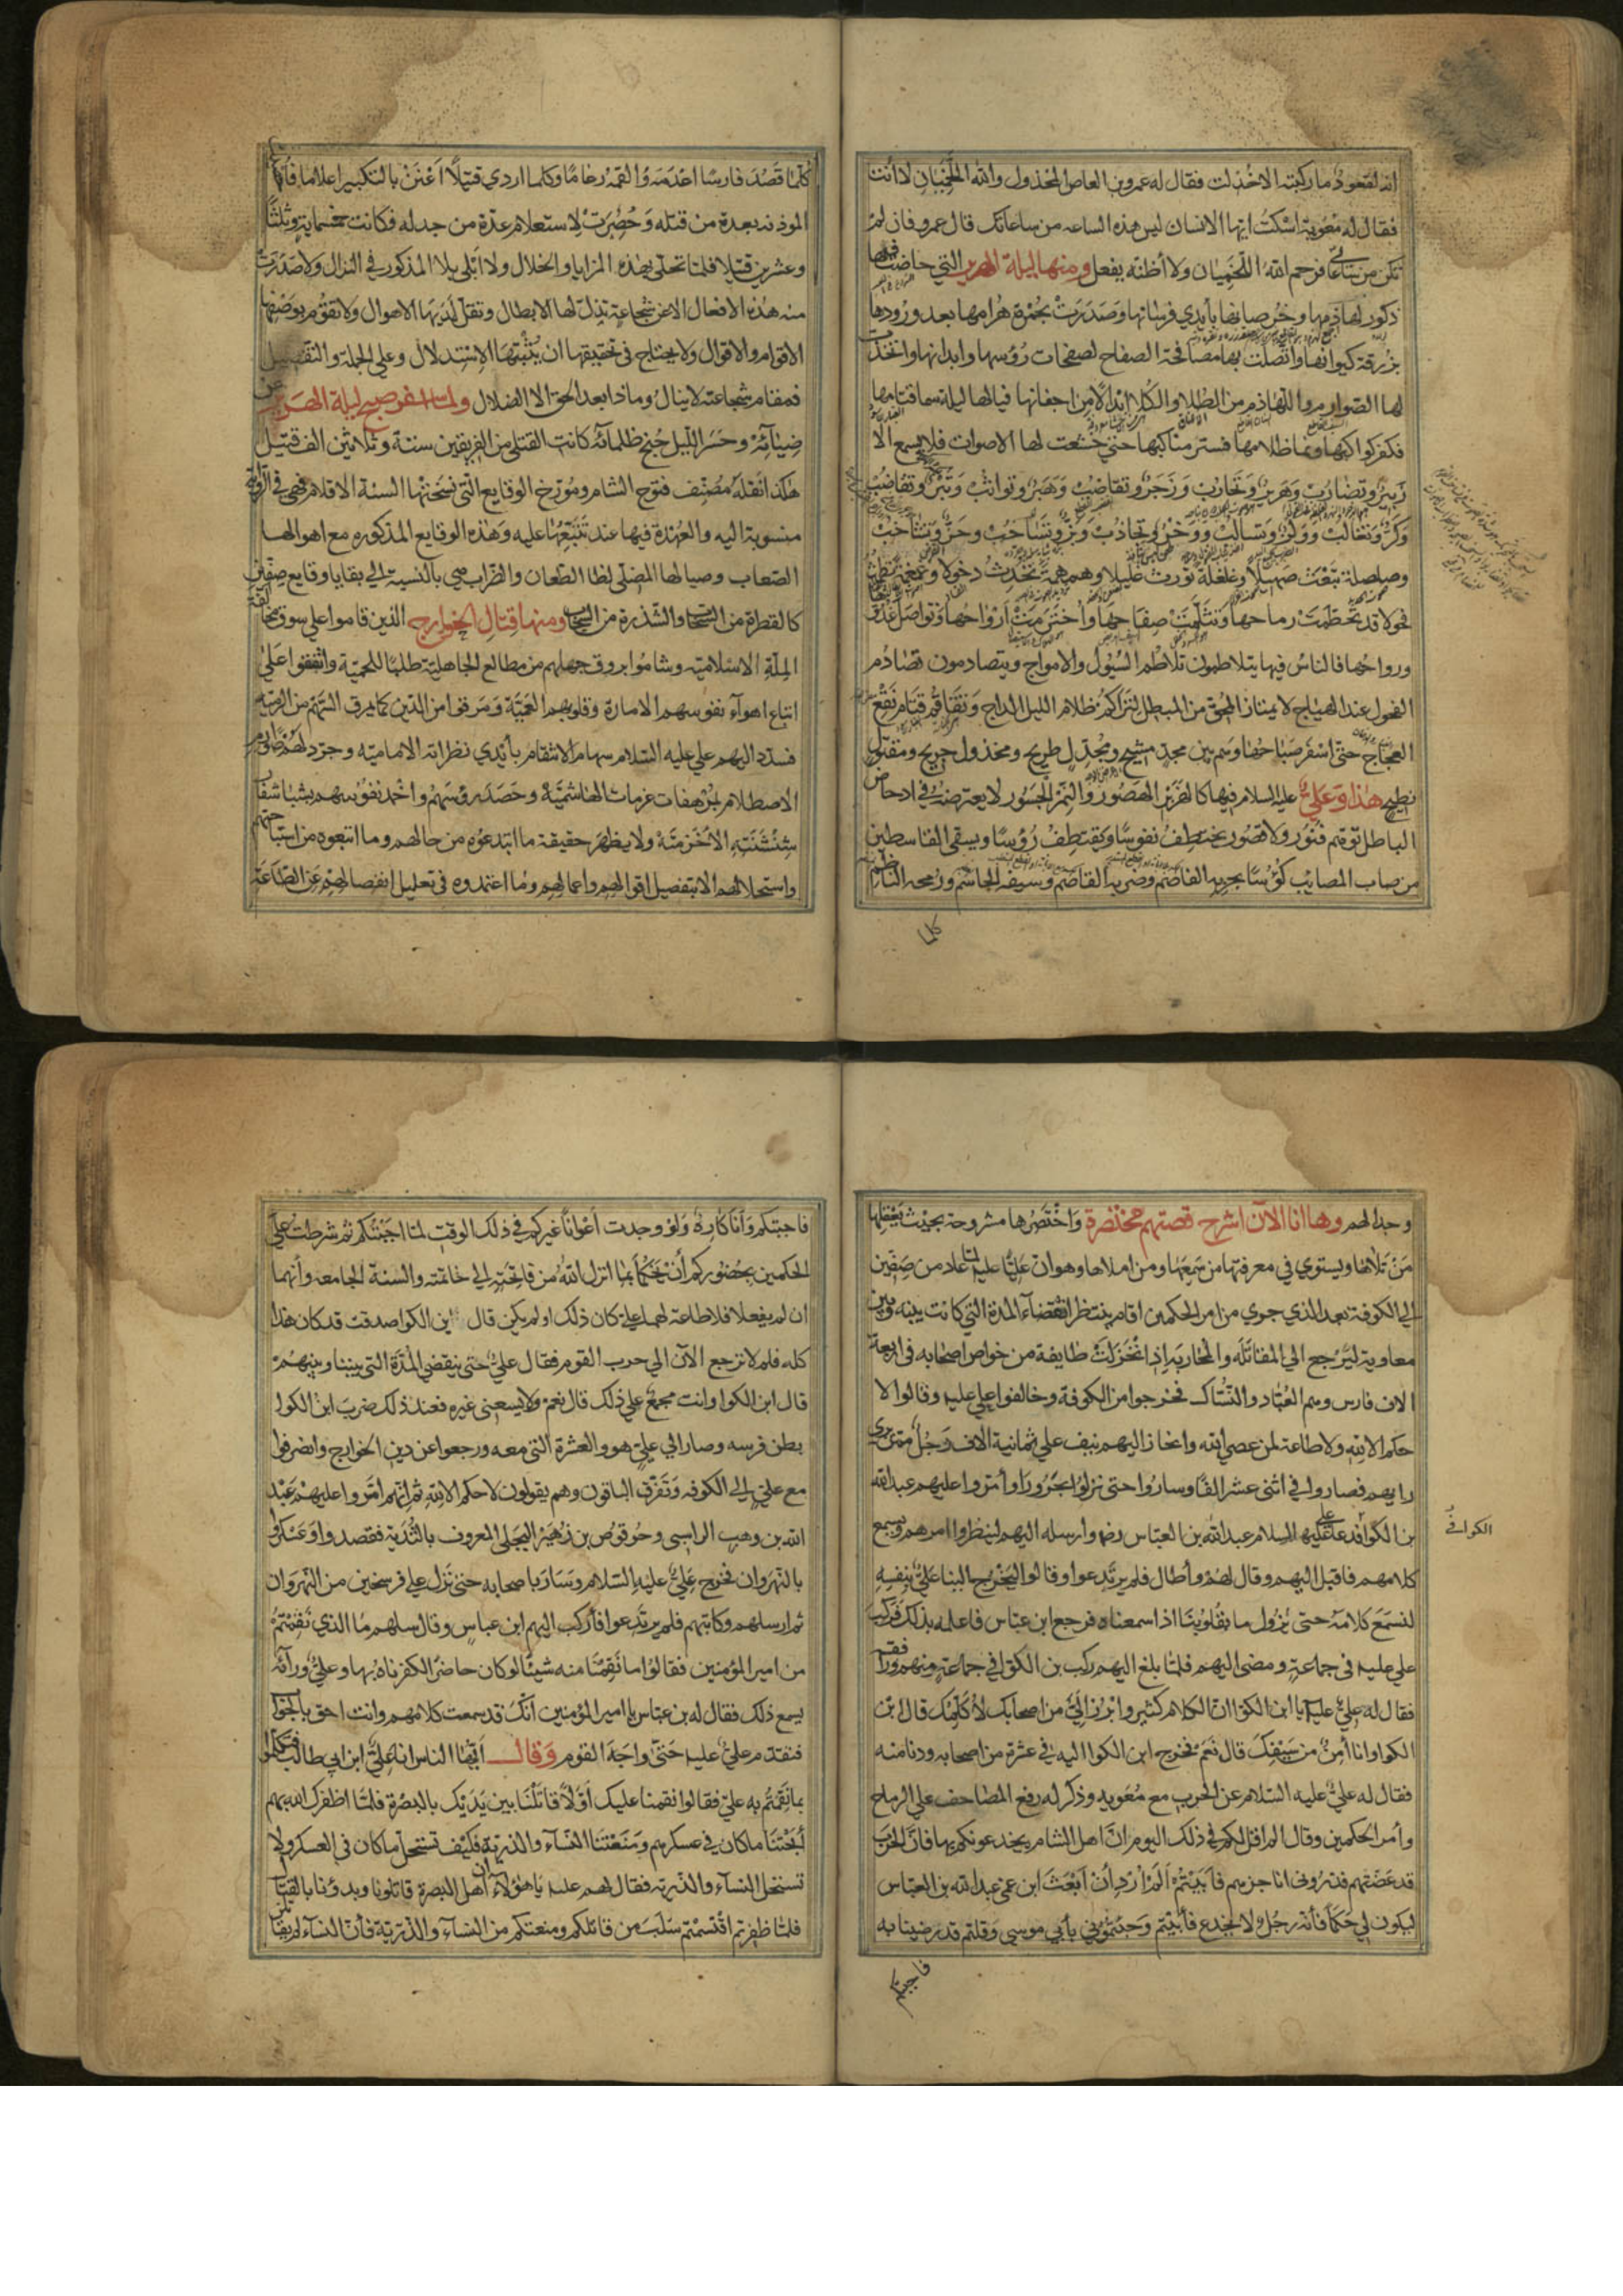 انه لقعود ما ركبته الا خذلت فقال له عمرو بن العاص المخذول والله اللخميان لا انت
فقال له معوية اسكت ايها الانسان ليس هذه الساعه من ساعاتك قال عمرو فان لم
تكن من ساعاتي فرحم الله اللخميان ولا أظنه يفعل ومنها ليلة الهرير التي خاضت فيها
ذكور لهاذمها وخرصانها بأيدي فرسانها وصدرت بحمرة هرامها بعد ورودها
بزرقة كيوانها واتصلت بها مصافحة الصفاح لصفحات رؤسها وابدانها واتخذت
لها الصوارم واللهاذم من الطلا والكلا ابدالا من اجفانها فيالها ليلة سما قتامها
فكفر كواكبها ونما ظلامها فستر مناكبها حتى خشعت لها الاصوات فلا يسمع الا
زبير وتضارب وهرير وتحارب وزجر وتقاضب وهبر وتواثب وتبر وتقاضب
وكر وتغالب وولز وتسالب ووخز وتجاذب وبز وتساحب وحز وتشاخب
وصلصلة تبعث صهيلا وغلغلة تورث غليلا وهمهمة تحدث دخولا وغمغمة
فحولا قد تحطمت رماحها وتثلمت صفاحها واخترمت أرواحها وتواصل غدوها
ورواحها فالناس فيها يتلاطمون تلاطم السيول والامواج ويتصادمون تصادم
الفحول عند الهياج لا يمتاز المحق من المبطل لتراكم ظلام الليل الداج وتفاقم قتام نقع
العجاج حتى اسفر صباحها وهم بين مجد مشيح ومجدل طريح ومخذول جريح ومقتل
نطيح هذا وعلي عليه السلام فيها كالهزبر الهصور والنمر الجسور لا يعترضه في ادحاض
الباطل توهم فتور ولا قصور يختطف نفوسا ويقتطف رؤسا ويسقى القاسطين
من صاب المصايب كؤسا بجريه القاضم وضربه القاصم وسيفه الحاسم ورمحه الناظم
كلما
كلما قصد فارسا اعدمه والقمه رغاما وكلما اردي قتيلا اعلن بالتكبير اعلاما فانها
الموذنه بعدة من قتله وحصرت لاستعلام عدة من جدله فكانت خمسماية وثلثا
وعشرين قتيلا فلما تحلى بهذه المزايا والخلال ولا ابلى بلاه المذكور في النزال ولا صدرت
منه هذه الافعال الا عن شجاعة تذل لها الابطال وتقل لديها الاهوال ولا تقوم بوصفها
الاقوام والاقوال ولا يحتاج في تحقيقها ان يثبتها الاستدلال وعلي الجملة والتفصيل
فمقام شجاعته لا ينال وماذا بعد الحق الا الضلال ولما اسفر صبح ليلة الهرير عن
ضيائه وحسر الليل جنح ظلمائه كانت القتلى من الفريقين ستة وثلاثين الف قتيل
هكذا نقله مصنف فتوح الشام ومورخ الوقايع التي نسختها السنة الاقلام فهي في الرواية
منسوبة اليه والعهدة فيها عند تتبعها عليه وهذه الوقايع المذكوره مع اهوالها
الصعاب وصيالها المضلى لظا الطعان والضراب هي بالنسبة الي بقايا وقايع صفين
كالقطرة من السحاب والشذرة من السخاب ومنها قتال الخوارج الذين قاموا علي سوق مخالفة
الملة الاسلامية وشاموا بروق جهلهم من مطالع الجاهلية طلبا للحمية واتفقوا على
اتباع اهوآء نفوسهم الامارة وقلوبهم العمية ومرقوا من الدين كما يمرق السهم من الرميه
فسدد اليهم علي عليه السلام سهام الانتقام بأيدي نظرائه الامامية وجرد لهم صوارم
الاصطلام بمرهفات عزمات الهاشمية وحصد رؤسهم واخمد نفوسهم بشبا شفار
شنشنته الاخزمية ولا يظهر حقيقة ما ابتدعوه من حالهم وما اتبعوه من استباحتهم
واستحلالهم الا بتفصيل اقوالهم واعمالهم وما اعتمدوه في تعليل انفصالهم عن الطاعة
وجدالهم وها انا الآن اشرح قصتهم مختصرة واختصرها مشروحة بحيث يعقلها
من تلاها ويستوي في معرفتها من سمعها ومن املاها وهو ان عليا عليه لما عاد من صفين
الي الكوفة بعد الذي جري من امر الحكمين اقام ينتظر انقضاء المدة التي كانت بينه وبين
معاوية ليرجع الي المقاتلة والمحاربه اذ انخزلت طايفة من خواص اصحابه في اربعة
الاف فارس وهم العباد والنساك فخرجوا من الكوفة وخالفوا علي عليه وقالوا لا
حكم الا لله ولا طاعة لمن عصي الله وانحاز اليهم نيف علي ثمانية الاف رجل ممن يري
رايهم فصاروا في اثنى عشر الفا وساروا حتى نزلوا بحرورا وأمروا عليهم عبد الله
بن الكوا فدعا علي عليه السلام عبد الله بن العباس رض وارسله اليهم لينظروا امرهم ويسمع
الكوا في
كلامهم فاقبل اليهم وقال لهم وأطال فلم يرتدعوا وقالوا ليخرج الينا علي بنفسه
لنسمع كلامه حتى يزول ما بقلوبنا اذا سمعناه فرجع ابن عباس فاعلمه بذلك فركب
علي عليه في جماعة ومضى اليهم فلما بلغ اليهم ركب بن الكوا في جماعة منهم فوراقفه
فقال له علي عليه يا ابن الكوا ان الكلام كثير وابرز الي من اصحابك لأكلمك قال ابن
الكوا وانا أمن من سيفك قال نعم فخرج ابن الكوا اليه في عشرة من اصحابه ودنا منه
فقال له علي عليه السلام عن الحرب مع معويه وذكر له رفع المصاحف علي الرماح
وأمر الحكمين وقال الم اقل لكم في ذلك اليوم ان اهل الشام يخدعونكم بها فان الحرب
قد عضتهم فذروني اناجزهم فأبيتم ألم أرد أن أبعث ابن عمي عبد الله بن العباس
ليكون لي حكما فأنه رجل لا يخدع فأبيتم وجئتموني بأبي موسي وقلتم قد رضينا به
فاجبتكم
فاجبتكم وأنا كاره ولو وجدت أعوانا غيركم في ذلك الوقت لما اجبتكم ثم شرطت علي
الحكمين بحضوركم أن يحكما بما انزل الله من فاتحته الي خاتمته والسنة الجامعه وأنهما
ان لم يفعلا فلا طاعة لهما علي كان ذلك او لم يكن قال ابن الكوا صدقت قد كان هذا
كله فلم لا نرجع الآن الي حرب القوم فقال علي حتى ينقضي المدة التي بيننا وبينهم
قال ابن الكوا وانت مجمع علي ذلك قال نعم ولا يسعني غيره فعند ذلك ضرب ابن الكوا
بطن فرسه وصار الي علي هو والعشرة التي معه ورجعوا عن دين الخوارج وانصرفوا
مع علي الي الكوفه وتفرق الباقون وهم يقولون لا حكم الا لله ثم انهم امروا عليهم عبد
الله بن وهب الراسبي وحرقوص بن زهير البجلي المعروف بالثدية فقصدوا وعسكروا
بالنهروان فخرج علي عليه السلام وسار باصحابه حتى نزل علي فرسخين من النهروان
ثم ارسلهم وكاتبهم فلم يرتدعوا فأركب اليهم ابن عباس وقال سلهم ما الذي نقمتم
من امير المؤمنين فقالوا ما نقمنا منه شيئا لو كان حاضرا لكفرناه بها وعلي ورآئه
يسمع ذلك فقال له بن عباس يا امير المؤمنين انك قد سمعت كلامهم وانت احق بالجواب
فتقدم علي عليه حتى واجه القوم وقال ايها الناس انا علي ابن ابي طالب فتكلموا
بما نقمتم به علي فقالوا نقمنا عليك أولا قاتلنا بين يديك بالبصرة فلما اظفرك الله بهم
أبحتنا ما كان في عسكرهم ومنعتنا النساء والذرية فكيف تستحل ما كان في العسكر ولا
تستحل النساء والذرية فقال لهم عليه يا هؤلاء ان أهل البصرة قاتلونا وبدؤنا بالقتال
فلما ظفرتم اقتسمتم سلب من قاتلكم ومنعتكم من النساء والذرية فأن النساء لم يقاتلن